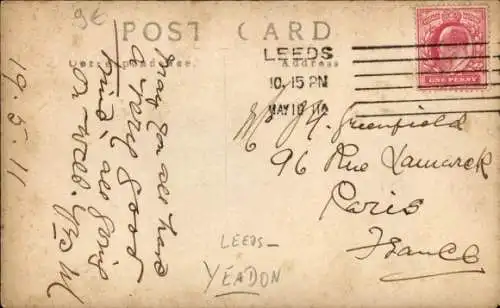 9€
POST CARD
Correspondence.
Address
LEEDS
10. 15 PM
MAY 18 11
ONE PENNY
19.5.11
Pray you all had
a very good
time, all going
on well.
Greenfield
96 Rue Lamarck
Paris
France
LEEDS-
YEADON